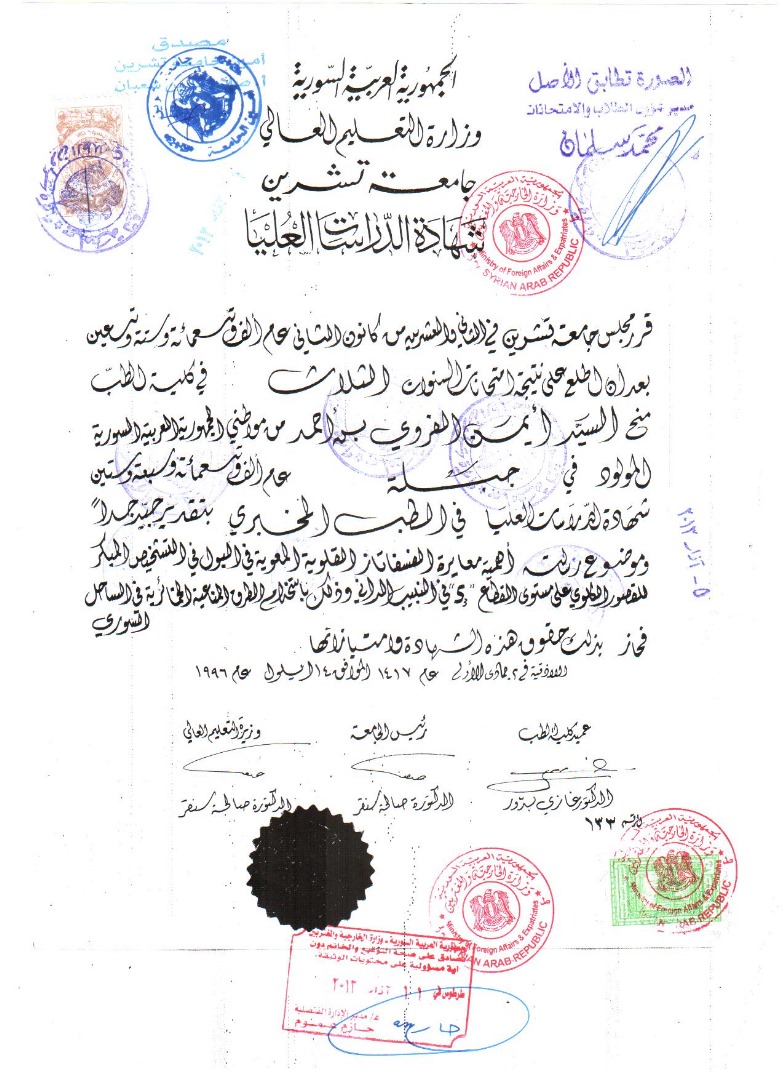 مصدق
الصورة تطابق الأصل
مدير شؤون الطلاب والامتحانات
محمد سلمان
الجمهورية العربية السورية
وزارة التعليم العالي
جامعة تشرين
شهادة الدراسات العليا
وزارة الخارجية والمغتربين
Ministry of Foreign Affairs & Expatriates
SYRIAN ARAB REPUBLIC
قرر مجلس جامعة تشرين في الثاني والعشرين من كانون الثاني عام ألف وتسعمائة وستة وتسعين
بعد أن اطلع على نتيجة امتحانات السنوات الثلاث في كلية الطب
منح السيد أيمن الفروي بن أحمد من مواطني الجمهورية العربية السورية
المولود في جبلة عام ألف وتسعمائة وسبعة وستين
شهادة الدراسات العليا في الطب المخبري بتقدير جيد جداً
وموضوع رسالته أهمية معايرة الفسفاتاز القلوية المعوية في البول في التشخيص المبكر
للقصور الكلوي على مستوى القطاع في النبيب الداني وذلك باستخدام الطرق المناعية الخمائرية في الساحل
السوري
فحاز بذلك حقوق هذه الشهادة وامتيازاتها
اللاذقية في ٢ جمادى الأولى عام ١٤١٧ الموافق ١٤ ايلول عام ١٩٩٦
٥ - آذار ٢٠١٣
عميد كلية الطب رئيس الجامعة وزيرة التعليم العالي
الدكتور غازي بدور الدكتورة صالحة سنقر الدكتورة صالحة سنقر
الرقم ١٣٣
وزارة الخارجية والمغتربين
Ministry of Foreign Affairs & Expatriates
SYRIAN ARAB REPUBLIC
الجمهورية العربية السورية - وزارة الخارجية والمغتربين
نصادق على صحة التوقيع والخاتم دون
أية مسؤولية على محتويات الوثيقة
طرطوس في آذار ٢٠١٣
ع/ مدير الإدارة القنصلية